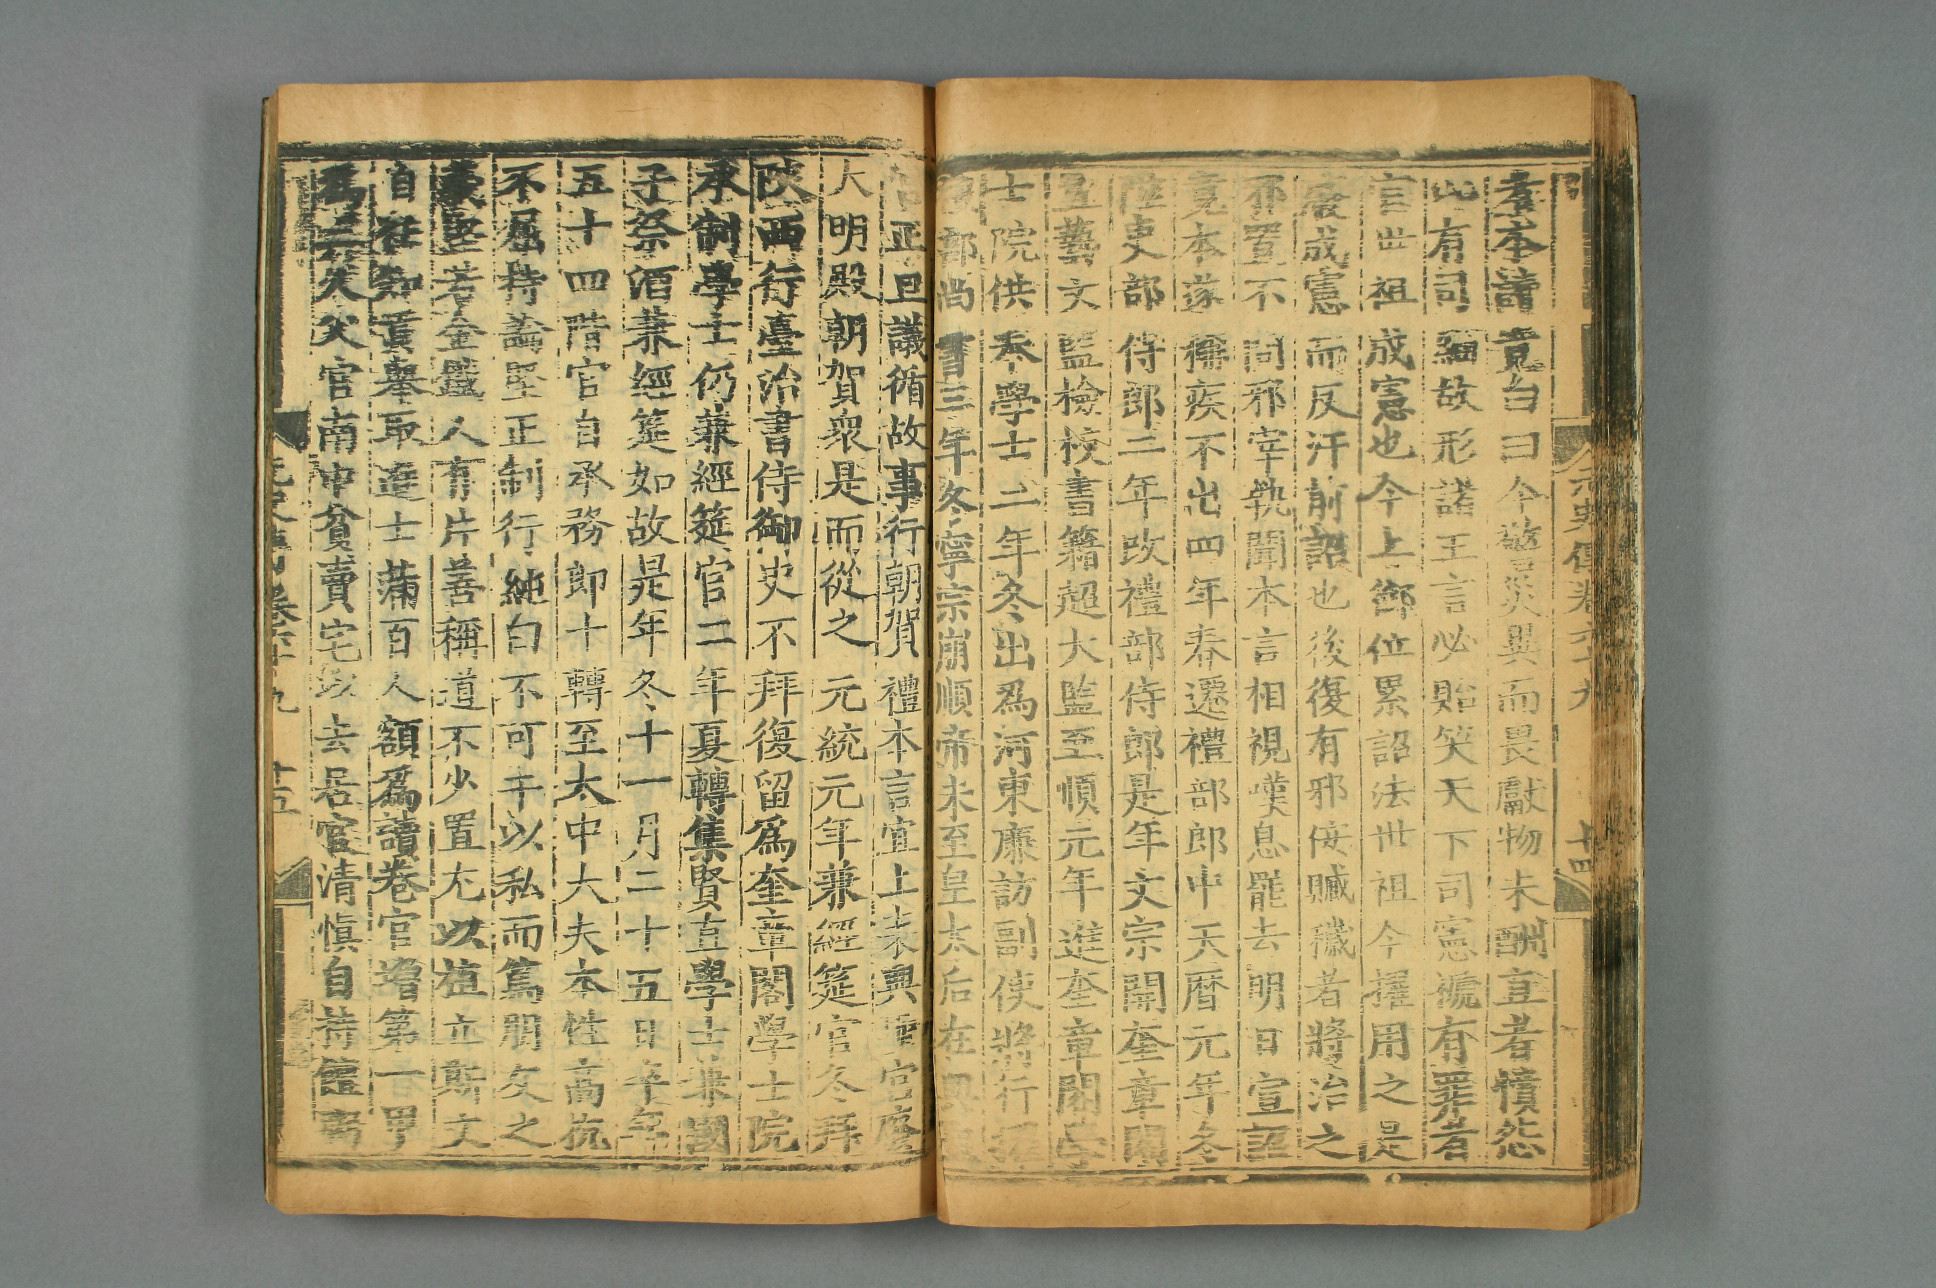 奏本讀竟白曰今警災異而畏獻物未酬直者憤怨
此有司細故形諸王言必貽笑天下司憲褫有罪者
官世祖成憲也今上卽位累詔法世祖今擢用之是
廢成憲而反汗前詔也後復有邪佞贓穢者將治之
邪置不問邪宰執聞本言相視嘆息罷去明日宣詔
竟本遂稱疾不出四年春遷禮部郎中天曆元年冬
陞吏部侍郎二年改禮部侍郎是年文宗開奎章閣
置藝文監檢校書籍超大監至順元年進奎章閣學
士院供奉學士二年冬出爲河東廉訪副使將行擢
禮部尚書三年冬寧宗崩順帝未至皇太后在興聖
宮正旦議循故事行朝賀禮本言宜上表興聖宮廢
大明殿朝賀衆是而從之元統元年兼經筵官冬拜
陝西行臺治書侍御史不拜復留爲奎章閣學士院
承制學士仍兼經筵官二年夏轉集賢直學士兼國
子祭酒兼經筵如故是年冬十一月二十五日卒年
五十四階官自承務郎十轉至太中大夫本性高抗
不屈持論堅正制行純白不可干以私而篤朋友之
義堅若金鐵人有片善稱道不少置尤以植立斯文
自任知貢舉取進士滿百人額爲讀卷官增第一甲
爲三人父官南中貧賣宅以去居官清愼自持饘粥
元史傳卷六十九 十四
元史傳卷六十九 十五